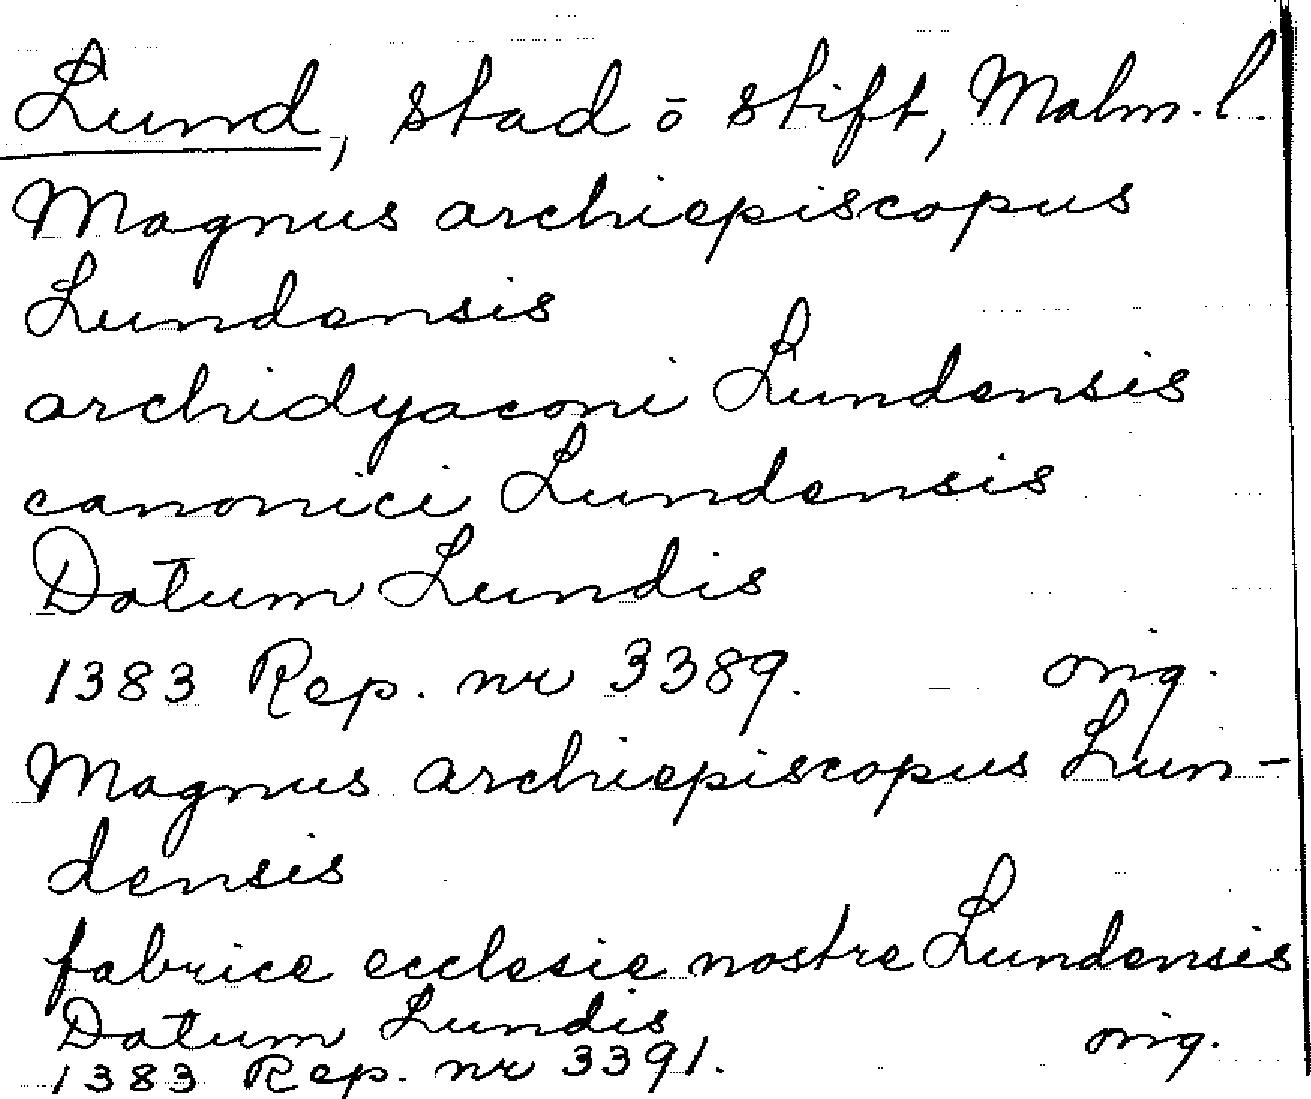 Lund, stad o stift, Malm. l.
Magnus archiepiscopus
Lundensis
archidyaconi Lundensis
canonici Lundensis
Datum Lundis
1383 Rep. nr 3389. orig.
Magnus archiepiscopus Lun-
densis
fabrice ecclesie nostre Lundensis
Datum Lundis
orig.
1383 Rep. nr 3391.